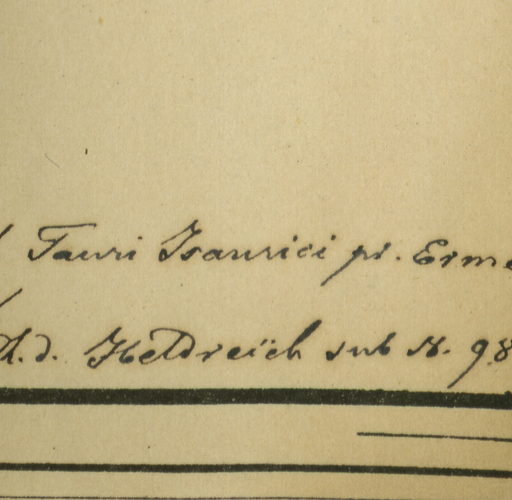 Tauri Isaurici pr. Erme
d. Heldreich sub N. 98